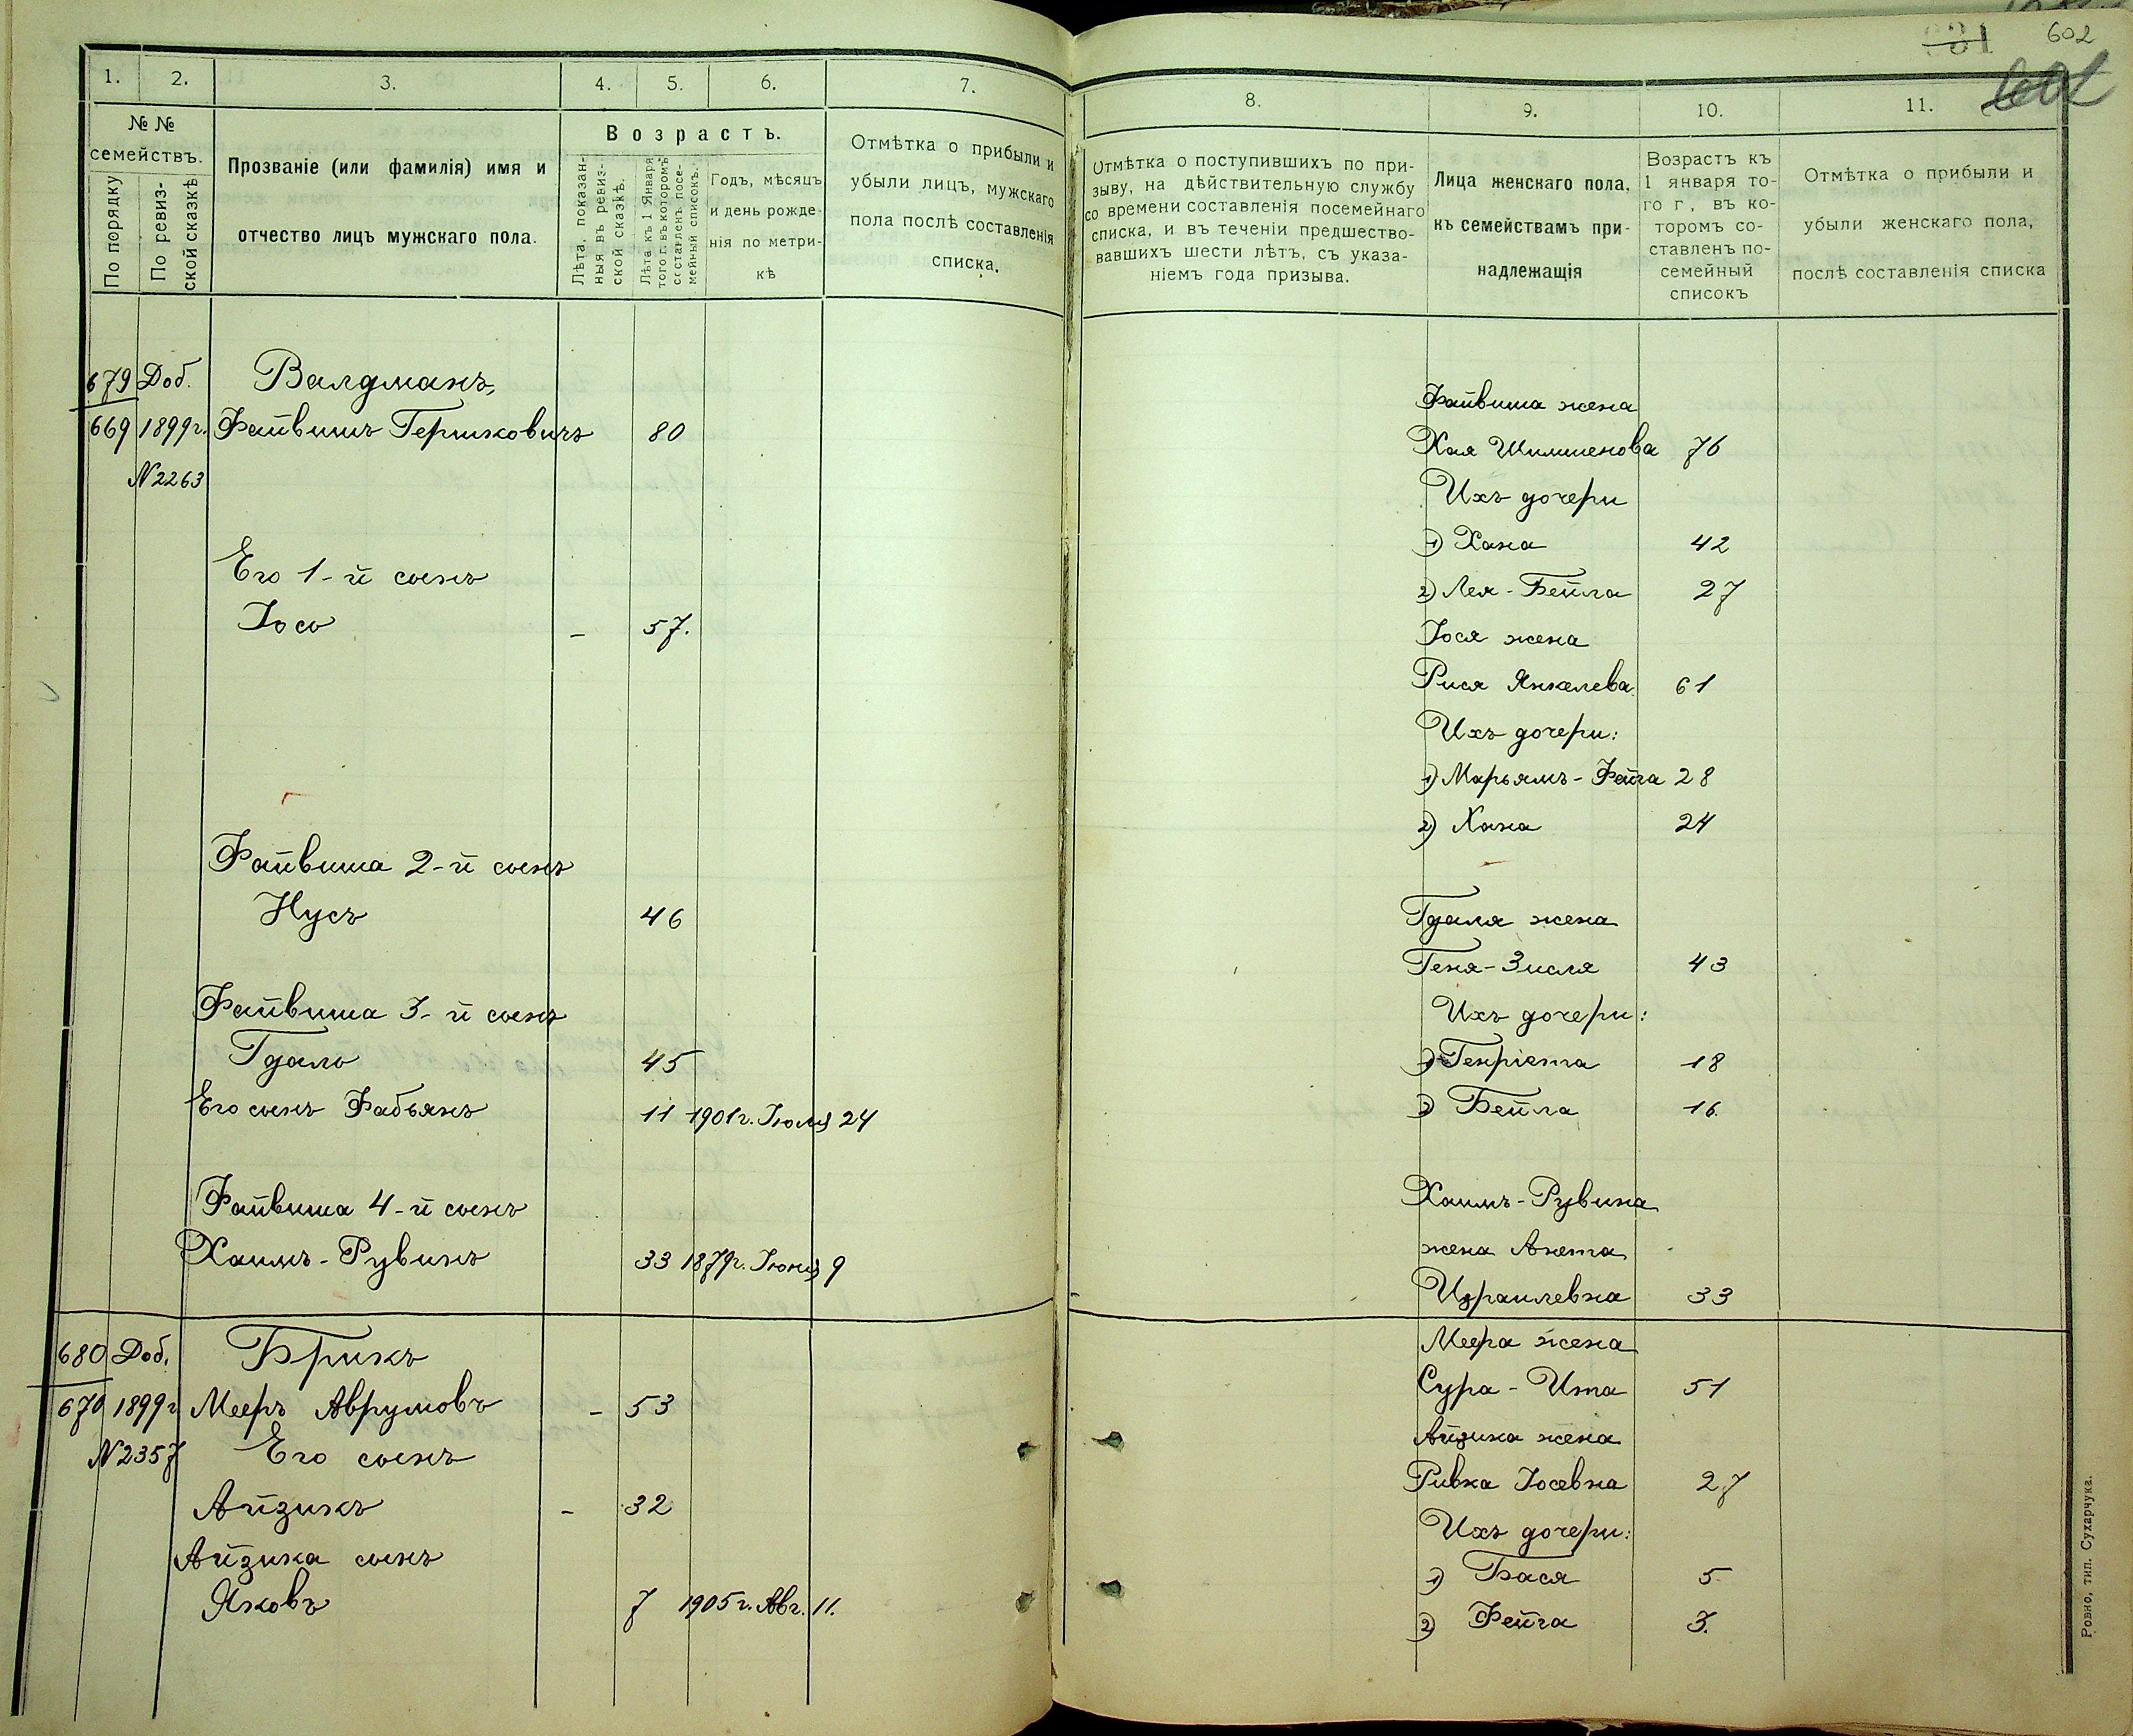 602
1.
2.
3.
4.
5.
6.
7.
№ №
семействъ.
По порядку
По ревиз-
ской сказкѣ
Прозваніе (или фамилія) имя и
отчество лицъ мужскаго пола.
Возрастъ.
Лѣта, показан-
ныя въ ревиз-
ской сказкѣ.
Лѣта къ 1 Января
того г. въ которомъ
составленъ посе-
мейный списокъ.
Годъ, мѣсяцъ
и день рожде-
нія по метри-
кѣ
Отмѣтка о прибыли и
убыли лицъ, мужскаго
пола послѣ составленія
списка.
679 Доб. Валдманъ,
669 1899г. Файвишъ Гершковичъ 80
N2263
Его 1-й сынъ
Іось - 57.
Файвиша 2-й сынъ
Нусъ 46
Файвиша 3-й сынъ
Гдаль 45
Его сынъ Фабьянъ 11 1901г. Іюля 24
Файвиша 4-й сынъ
Хаимъ-Рувинъ 33 1879г. Іюня 9
680 Доб. Брикъ
670 1899г Мееръ Аврумовъ - 53
N2357 Его сынъ
Айзикъ - 32
Айзика сынъ
Яковъ 7 1905г. Авг. 11.
8.
9.
10.
11.
Отмѣтка о поступившихъ по при-
зыву, на дѣйствительную службу
со времени составленія посемейнаго
списка, и въ теченіи предшество-
вавшихъ шести лѣтъ, съ указа-
ніемъ года призыва.
Лица женскаго пола,
къ семействамъ при-
надлежащія
Возрастъ къ
1 января то-
го г, въ ко-
торомъ со-
ставленъ по-
семейный
списокъ
Отмѣтка о прибыли и
убыли женскаго пола,
послѣ составленія списка
Файвиша жена
Хая Шимшенова 76
Ихъ дочери
1) Хана 42
2) Лея-Бейла 27
Іося жена
Рися Янкелева 61
Ихъ дочери:
1) Марьямъ-Фейга 28
2) Хана 24
Гдаля жена
Геня-Зисля 43
Ихъ дочери:
1) Генріета 18
2) Бейла 16
Хаимъ-Рувина
жена Анета
Израилевна 33
Меера жена
Сура-Ита 51
Айзика жена
Ривка Іосевна 27
Ихъ дочери:
1) Бася 5
2) Фейга 3.
Ровно, тип. Сухарчука.